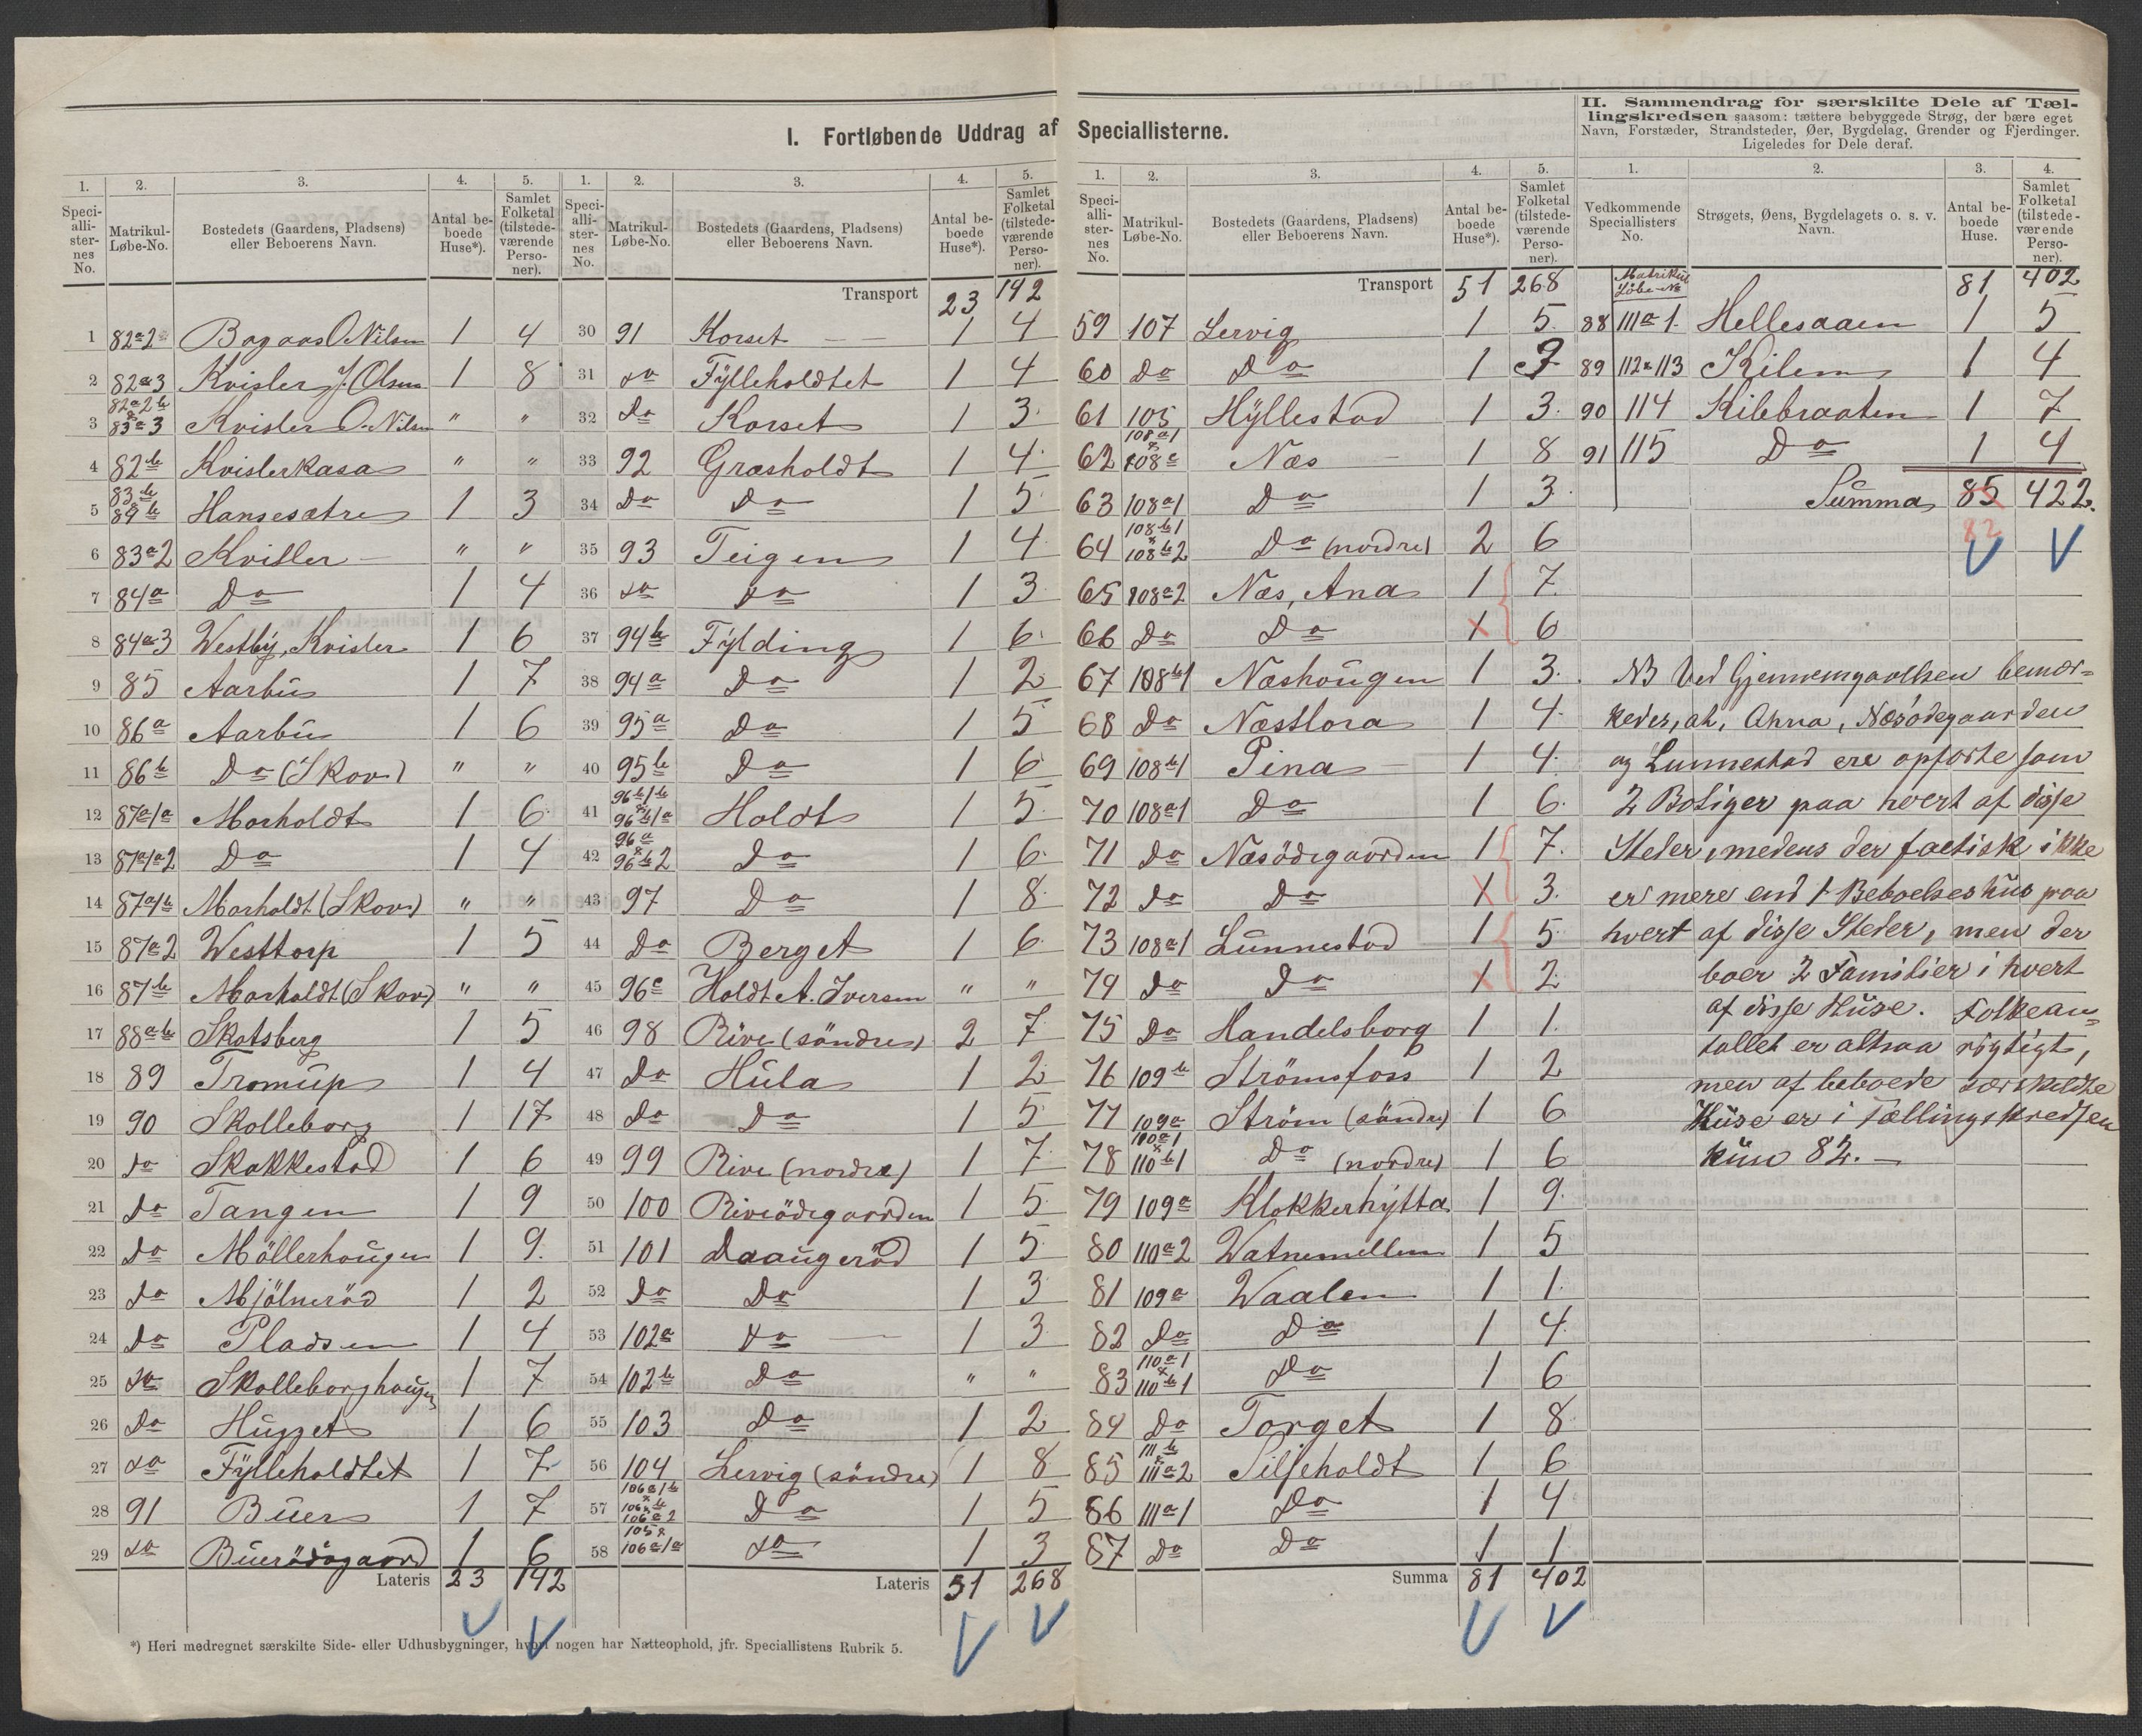 I. Fortløbende Uddrag af Speciallisterne.
II. Sammendrag for særskilte Dele af Tæl-
lingskredsen saasom: tættere bebyggede Strøg, der bære eget
Navn, Forstæder, Strandsteder, Øer, Bygdelag, Grender og Fjerdinger.
Ligeledes for Dele deraf.
1. 2. 3. 4. 5.
Speciallisternes No. Matrikul-Løbe-No. Bostedets (Gaardens, Pladsens) eller Beboerens Navn. Antal beboede Huse*). Samlet Folketal (tilstedeværende Personer).
1 82a2 Bagaas O Nilsen 1 4
2 82a3 Kvisler J. Olsen 1 8
3 82a2b & 83a3 Kvisler O. Nilsen " "
4 82b Kvislerkasa " "
5 83b 84b Hansesætre 1 3
6 83a2 Kvisler " "
7 84a Do 1 4
8 84a3 Westby, Kvisler 1 6
9 85 Aarbu 1 7
10 86a Aarbu 1 6
11 86b Do (Skov) " "
12 87a1a Morholdt 1 6
13 87a1a2 Do 1 4
14 87a1b Morholdt (Skov) " "
15 87a2 Westtorp 1 5
16 87b Morholdt (Skov) " "
17 88ab Skotsberg 1 5
18 89 Tromup 1 4
19 90 Skolleborg 1 17
20 do Skakkestad 1 6
21 do Tangen 1 9
22 do Möllerhougen 1 9.
23 do Mjölneröd 1 2
24 do Pladsen 1 4
25 do Skolleborghougen 1 7
26 Do Hugget 1 6
27 do Fylleholdtet 1 7
28 91 Buer 1 7
29 do Buerödegaard 1 6
Lateris 23 142
*) Heri medregnet særskilte Side- eller Udhusbygninger, hvori nogen har Natteophold, jfr. Speciallistens Rubrik 5.
1. 2. 3. 4. 5.
Speciallisternes No. Matrikul-Løbe-No. Bostedets (Gaardens, Pladsens) eller Beboerens Navn. Antal beboede Huse*). Samlet Folketal (tilstedeværende Personer).
Transport 23 142
30 91 Korset 1 4
31 do Fylleholdtet 1 4
32 Do Korset 1 3
33 92 Græsholdt 1 4
34 Do Do 1 5
35 93 Teigen 1 4
36 do do 1 3
37 94b Fylding 1 6
38 94a Do 1 2
39 95a Do 1 5
40 95b Do 1 6
41 96b1b & 96b1a Holdt 1 5
42 96a & 96b2 Do 1 6
43 97 Do 1 8
44 Do Berget 1 6
45 96c Holdt A. Iversen " "
46 98 Rive (söndre) 2 7
47 Do Hula 1 2
48 Do Do 1 5
49 99 Rive (nordre) 1 7
50 100 Riveödegaarden 1 5
51 101 Daaugeröd 1 5
52 Do Do 1 3
53 102a Do 1 3
54 102b Do " "
55 103 Do 1 2
56 104 Lervig (söndre) 1 8
57 106a1b & 106b & 106a2 Do 1 5
58 105 & 106a1a do 1 3
Lateris 51 268
1. 2. 3. 4. 5.
Speciallisternes No. Matrikul-Løbe-No. Bostedets (Gaardens, Pladsens) eller Beboerens Navn. Antal beboede Huse*). Samlet Folketal (tilstedeværende Personer).
Transport 51 268
59 107 Lervig 1 5
60 Do Do 1 7
61 105 Hyllestad 1 3
62 108a1 & 108c Næs 1 8
63 108a1 Do 1 3
64 108b1 & 108b2 Do (nordre) 2 6
65 108a2 Næs, Ana 1 7
66 Do Do 1 6
67 108b1 Næshougen 1 3
68 Do Næsstlora 1 4
69 108b1 Pina 1 4
70 108a1 Do 1 6
71 Do Næsödegaarden 1 7
72 do Do 1 3
73 108a1 Lunnestad 1 5
74 do Do 1 2
75 Do Handelsborg 1 1
76 109b Strömsfoss 1 2
77 109a Ström (söndre) 1 6
78 110a1 & 110b1 Do (nordre) 1 6
79 109a Klokkerhytta 1 9
80 110a2 Watnemellem 1 5
81 109a Waalen 1 1
82 Do Do 1 4
83 110a1 & 110b1 Do 1 6
84 Do Torget 1 8
85 111b & 111a2 Siljeholdt 1 6
86 111a1 Do 1 4
87 Do Do 1 1
Summa 81 402
1. 2. 3. 4.
Vedkommende Speciallisters No. Strøgets, Øens, Bygdelagets o. s. v. Navn. Antal beboede Huse. Samlet Folketal (tilstedeværende Personer).
Matrikul Löbe-No 81 402
88 111a1. Hellesaaen 1 5
89 112 & 113 Kilen 1 4
90 114 Kilebraaten 1 7
91 115 Do 1 4
Summa 85 422.
82
NB Ved Gjennemgaaelsen bemær-
kedes, at, Anna, Næsödegaarden
og Lunnestad ere opførte som
2 Boliger paa hvert af disse
Steder, medens der factisk ikke
er mere end 1 Beboelseshus paa
hvert af disse Steder, men der
boer 2 Familier i hvert
af disse Huse. Folkean-
tallet er altsaa rigtigt,
men af beboede særskildte
Huse er i Tællingskredsen
kun 82.